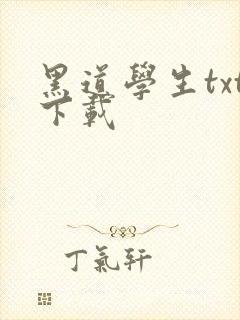 黑道學生txt
下載
丁氣軒